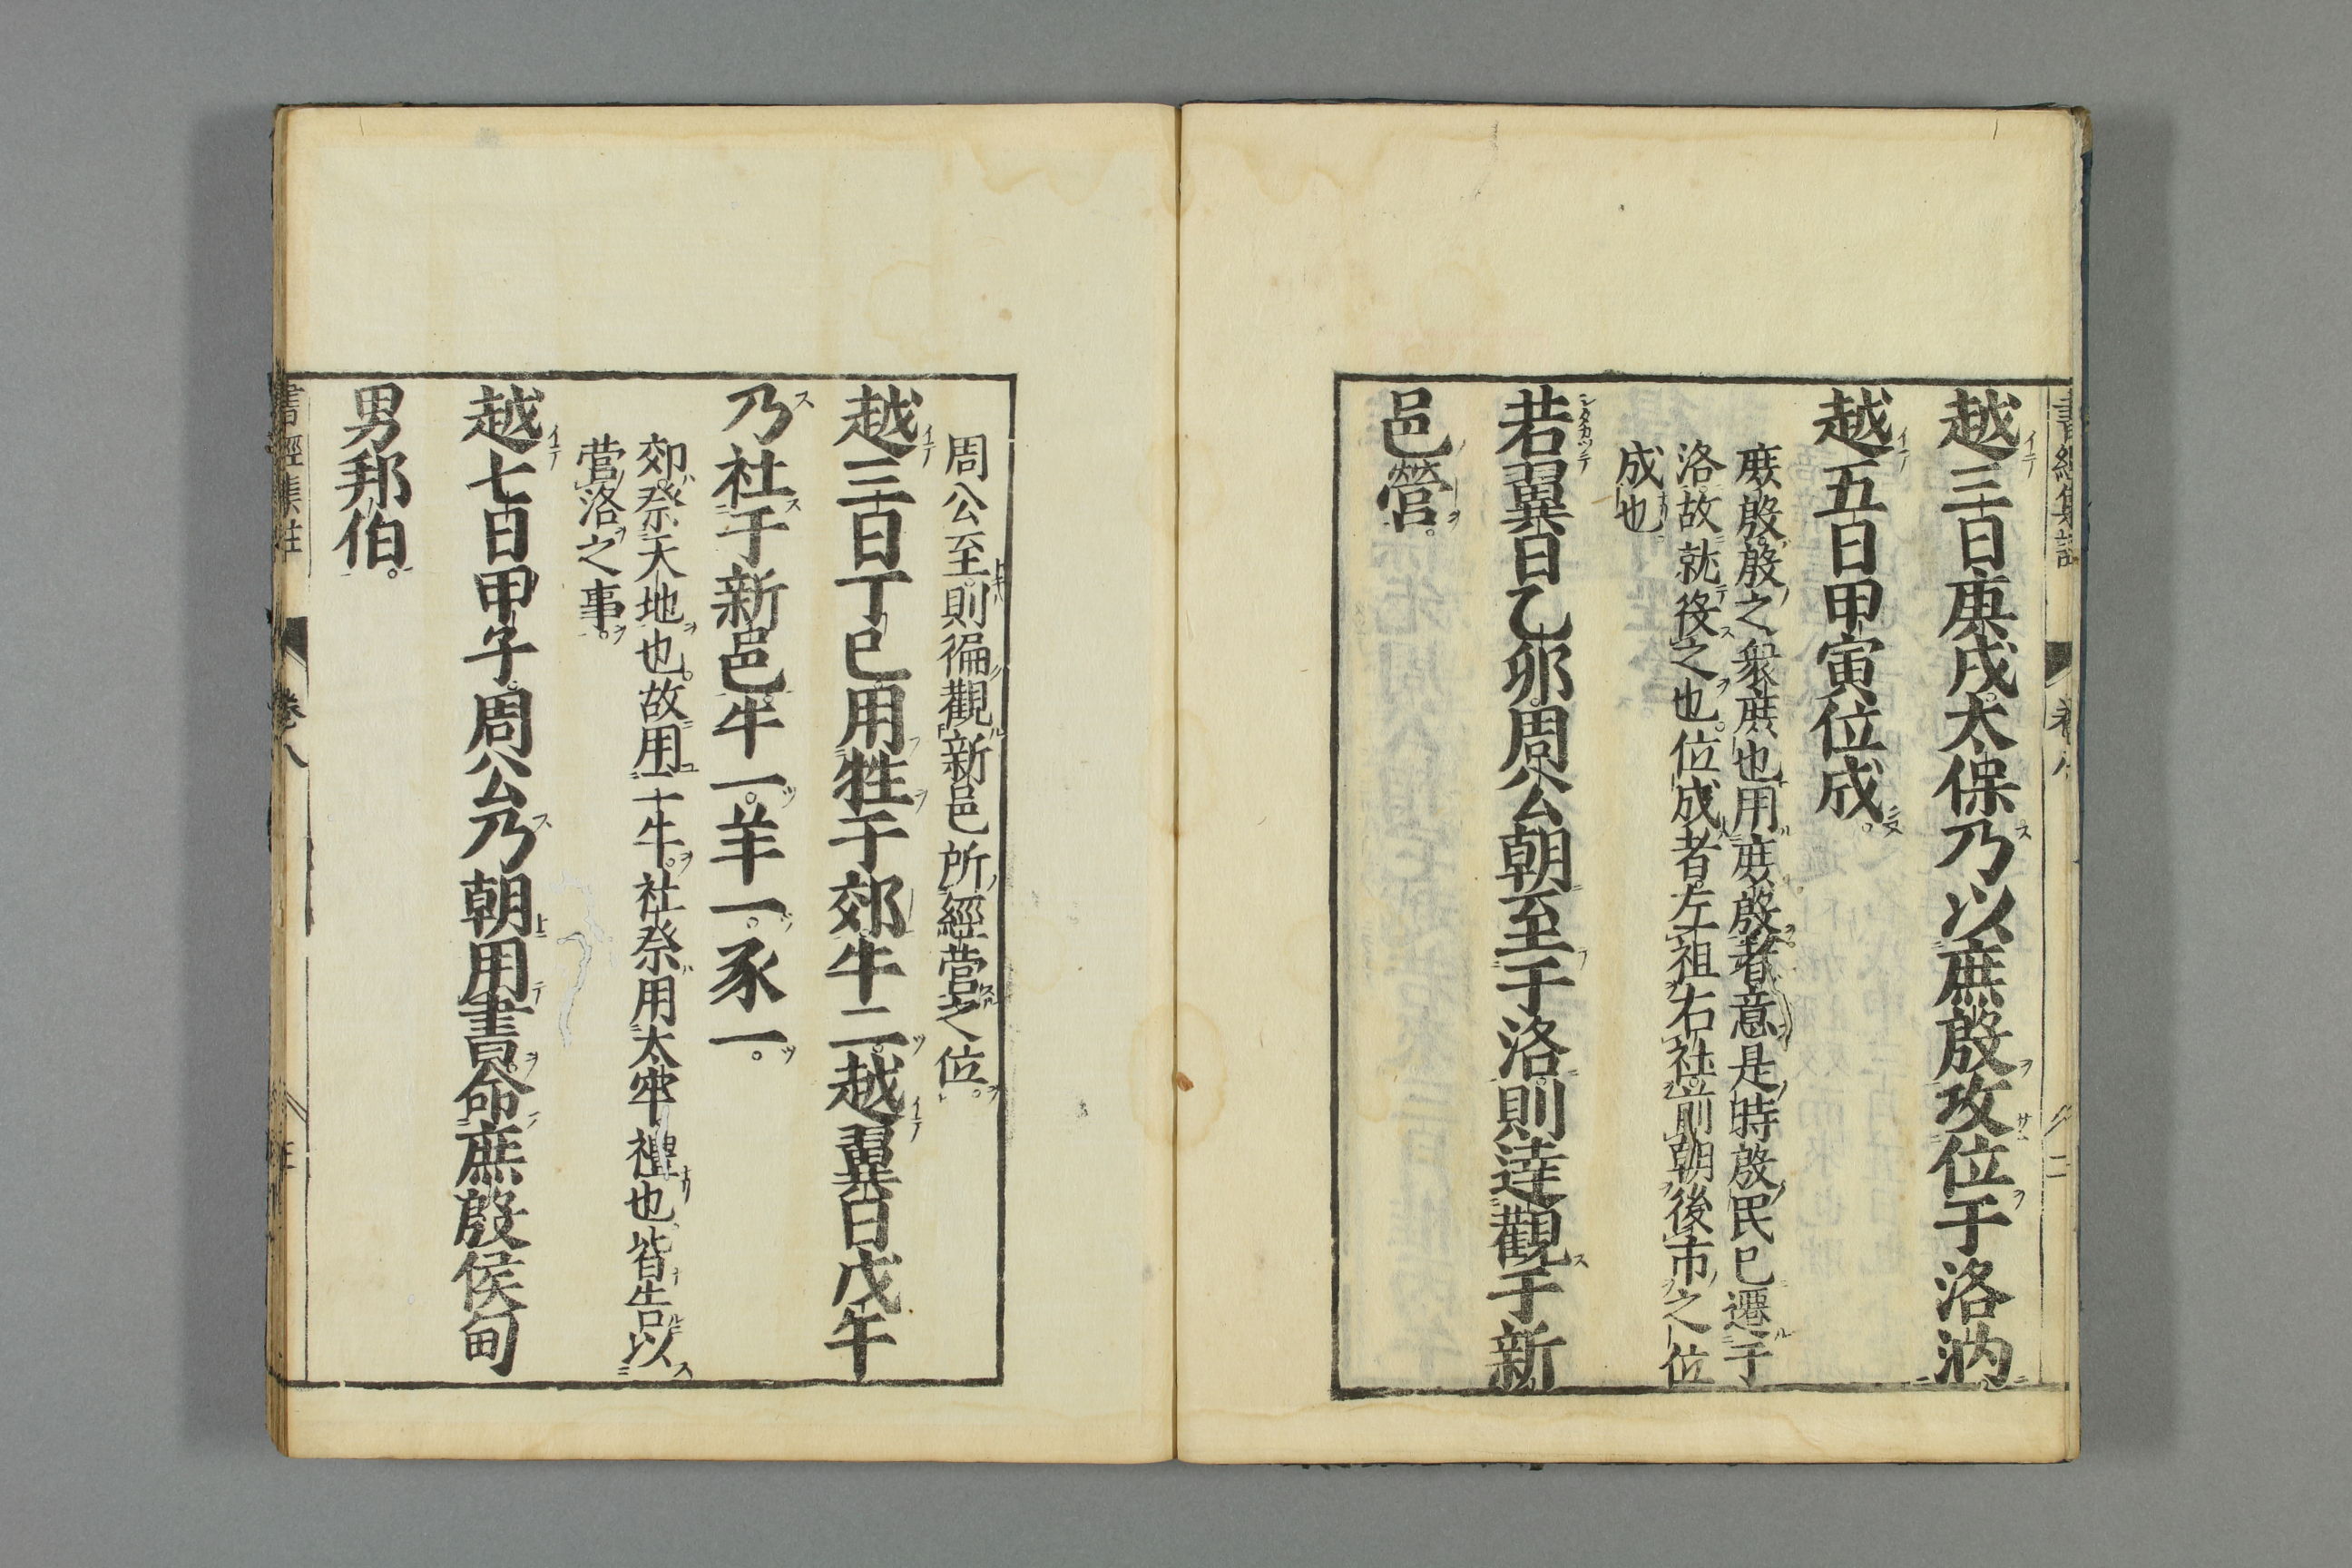 越三日庚戌太保乃以庶殷攻位于洛汭
越五日甲寅位成。
庶殷殷之衆庶也用庶殷者意是時殷民已遷于
洛故就役之也。位成者左祖右社前朝後市之位
成也
若翼日乙卯周公朝至于洛則達觀于新
邑營。
周公至則徧觀新邑所經營之位。
越三日丁巳用牲于郊牛二越翼日戊午
乃社于新邑牛一。羊一。豕一。
郊祭天地也。故用二牛。社祭用太牢禮也皆告以
營洛之事。
越七日甲子周公乃朝用書命庶殷侯甸
男邦伯。
書經集註 卷八